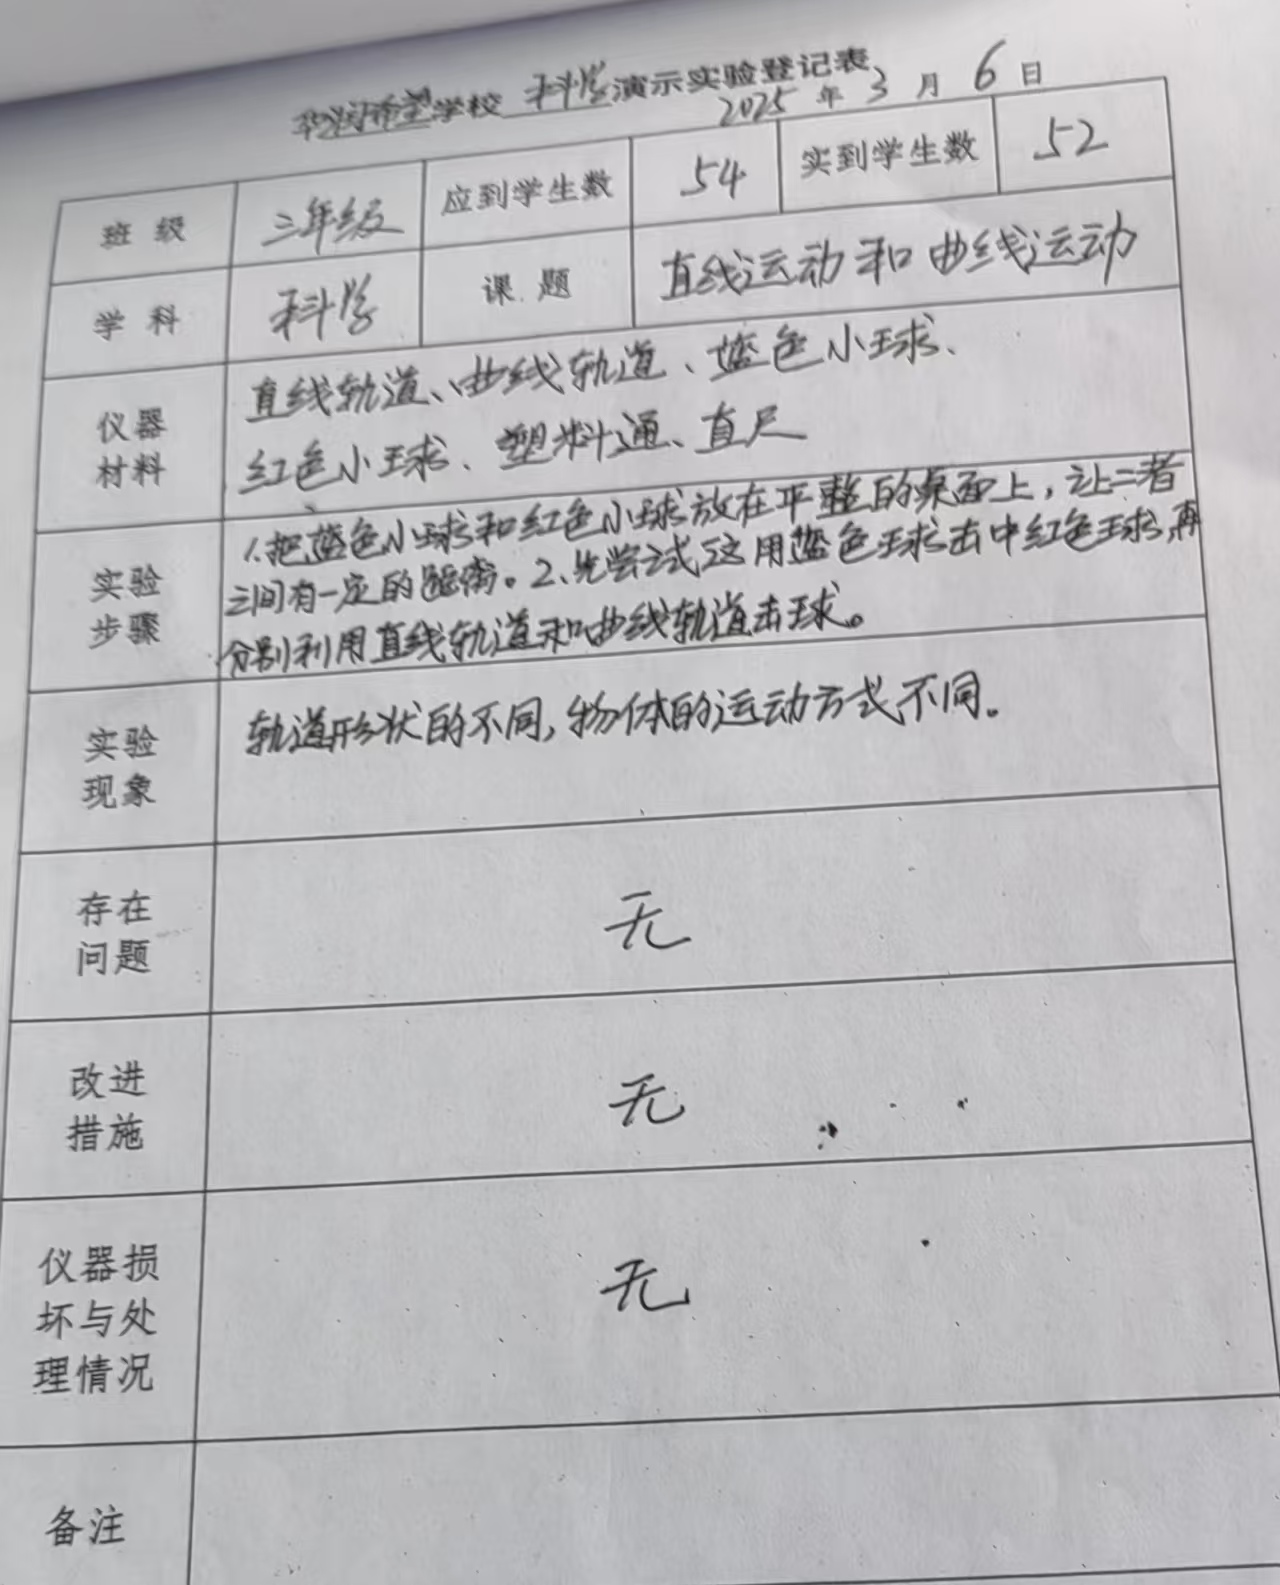 华润希望学校 科学演示实验登记表
2025 年 3 月 6 日
班 级 三年级 应到学生数 54 实到学生数 52
学 科 科学 课 题 直线运动和曲线运动
仪器
材料
直线轨道、曲线轨道、蓝色小球、
红色小球、塑料通、直尺
实验
步骤
1.把蓝色小球和红色小球放在平整的桌面上,让二者
之间有一定的距离。2、先尝试 用蓝色球击中红色球,再
分别利用直线轨道和曲线轨道击球。
实验
现象
轨道形状的不同,物体的运动方式不同。
存在
问题
无
改进
措施
无
仪器损
坏与处
理情况
无
备注